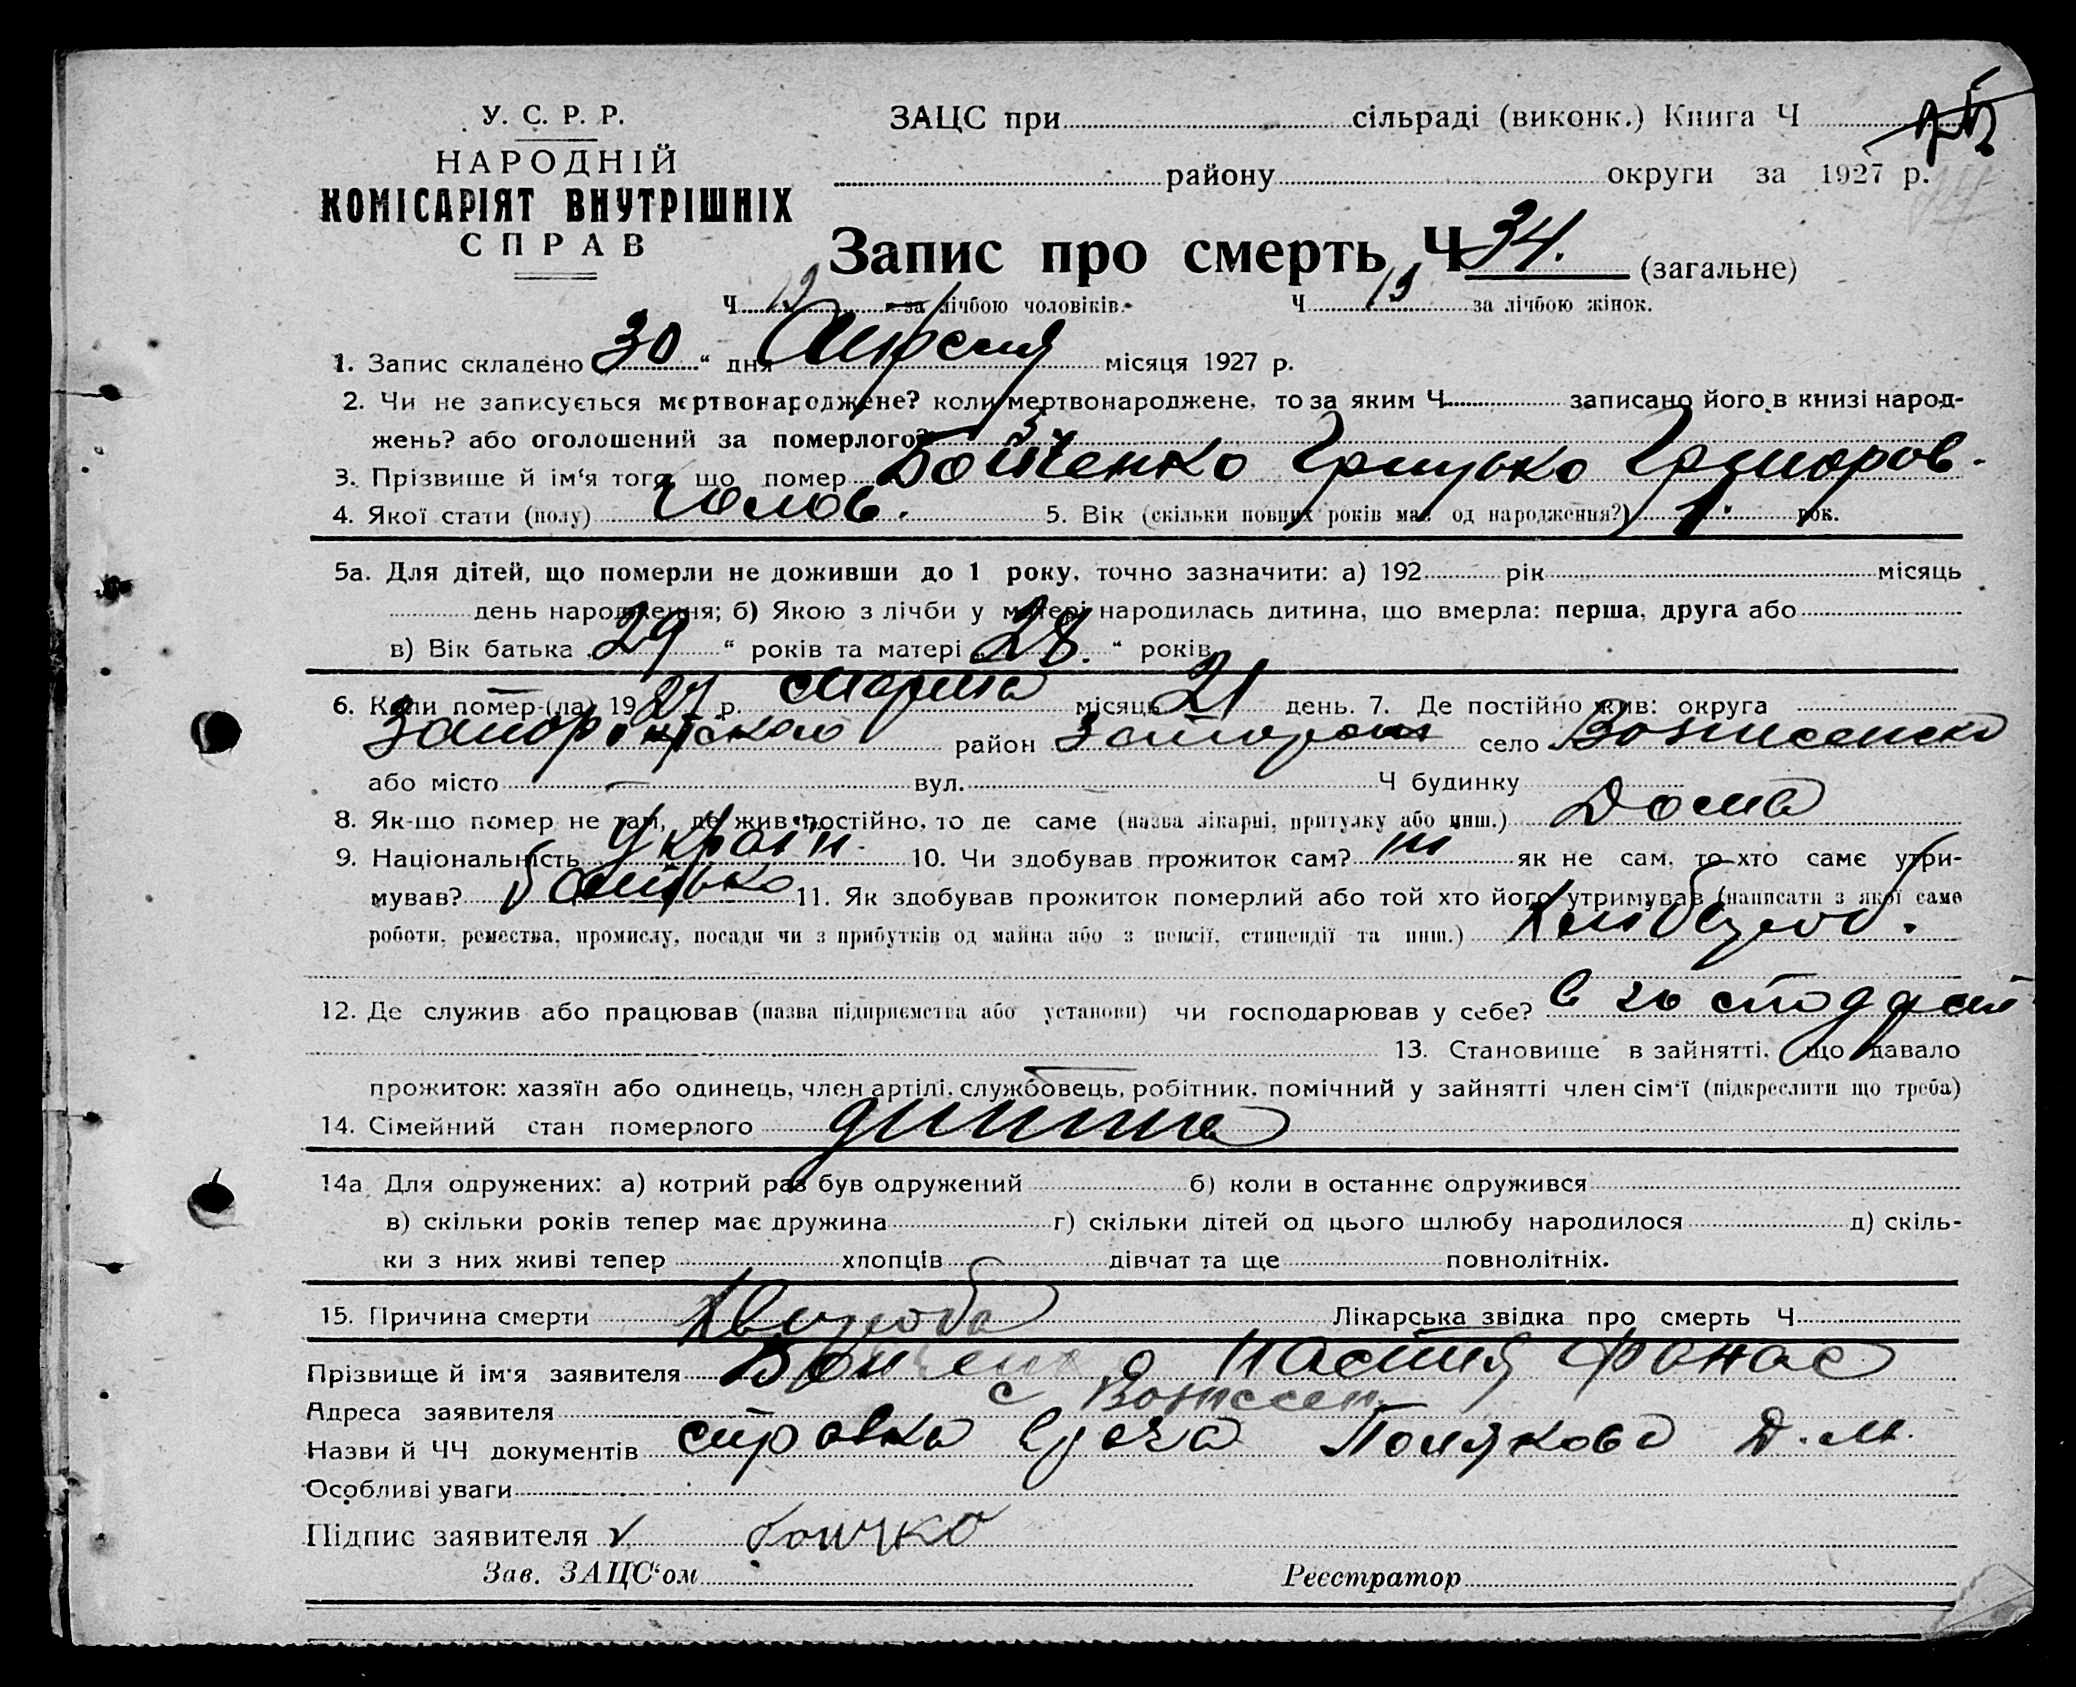 У. С. Р. Р.
НАРОДНІЙ
КОМІСАРІЯТ ВНУТРІШНІХ
СПРАВ
ЗАЦС при сільраді (виконк.) Книга Ч
району округи за 1927 р.
Запис про смерть Ч 34. (загальне)
Ч за лічбою чоловіків. Ч 15 за лічбою жінок.
1. Запис складено 30 “ дня Апреля місяця 1927 р.
2. Чи не записується мертвонароджене? коли мертвонароджене, то за яким Ч записано його в книзі народ-
жень? або оголошений за померлого?
3. Прізвище й ім‘я того, що помер Бойченко Грицько Григоров.
4. Якої стати (полу) Чолов. 5. Вік (скільки повних років мав од народження?) 1. рок.
5а. Для дітей, що померли не доживши до 1 року, точно зазначити: а) 192 рік місяць
день народження; б) Якою з лічби у матері народилась дитина, що вмерла: перша, друга або
в) Вік батька 29 “ років та матері „ 28. “ років
6. Коли помер-(ла) 1927 р. Марта місяць 21 день. 7. Де постійно жив: округа
Запоріжська район Запоріж село Вознесенка
або місто — вул. Ч будинку
8. Як-що помер не там, де жив постійно, то де саме (назва лікарні, притулку або инш.) Дома
9. Національність Україн. 10. Чи здобував прожиток сам? ні як не сам, то хто саме утри-
мував? батько 11. Як здобував прожиток померлий або той хто його утримував (написати з якої саме
роботи, ремества, промислу, посади чи з прибутків од майна або з пенсії, стипендії та инш.) Хлібороб.
12. Де служив або працював (назва підприємства або установи) чи господарював у себе? в
13. Становище в зайнятті, що давало
прожиток: хазяїн або одинець, член артілі, службовець, робітник, помічний у зайнятті член сім‘ї (підкреслити що треба)
14. Сімейний стан померлого дитина
14а Для одружених: а) котрий раз був одружений б) коли в останнє одружився
в) скільки років тепер має дружина г) скільки дітей од цього шлюбу народилося д) скіль-
ки з них живі тепер хлопців дівчат та ще повнолітніх.
15. Причина смерти Хвороба Лікарська звідка про смерть Ч
Прізвище й ім‘я заявителя Бойченко Настія Фанас
Адреса заявителя с Вознесен.
Назви й ЧЧ документів справка врача Полякова Д. М.
Особливі уваги
Підпис заявителя v боичко
Зав. ЗАЦС‘ом Реєстратор